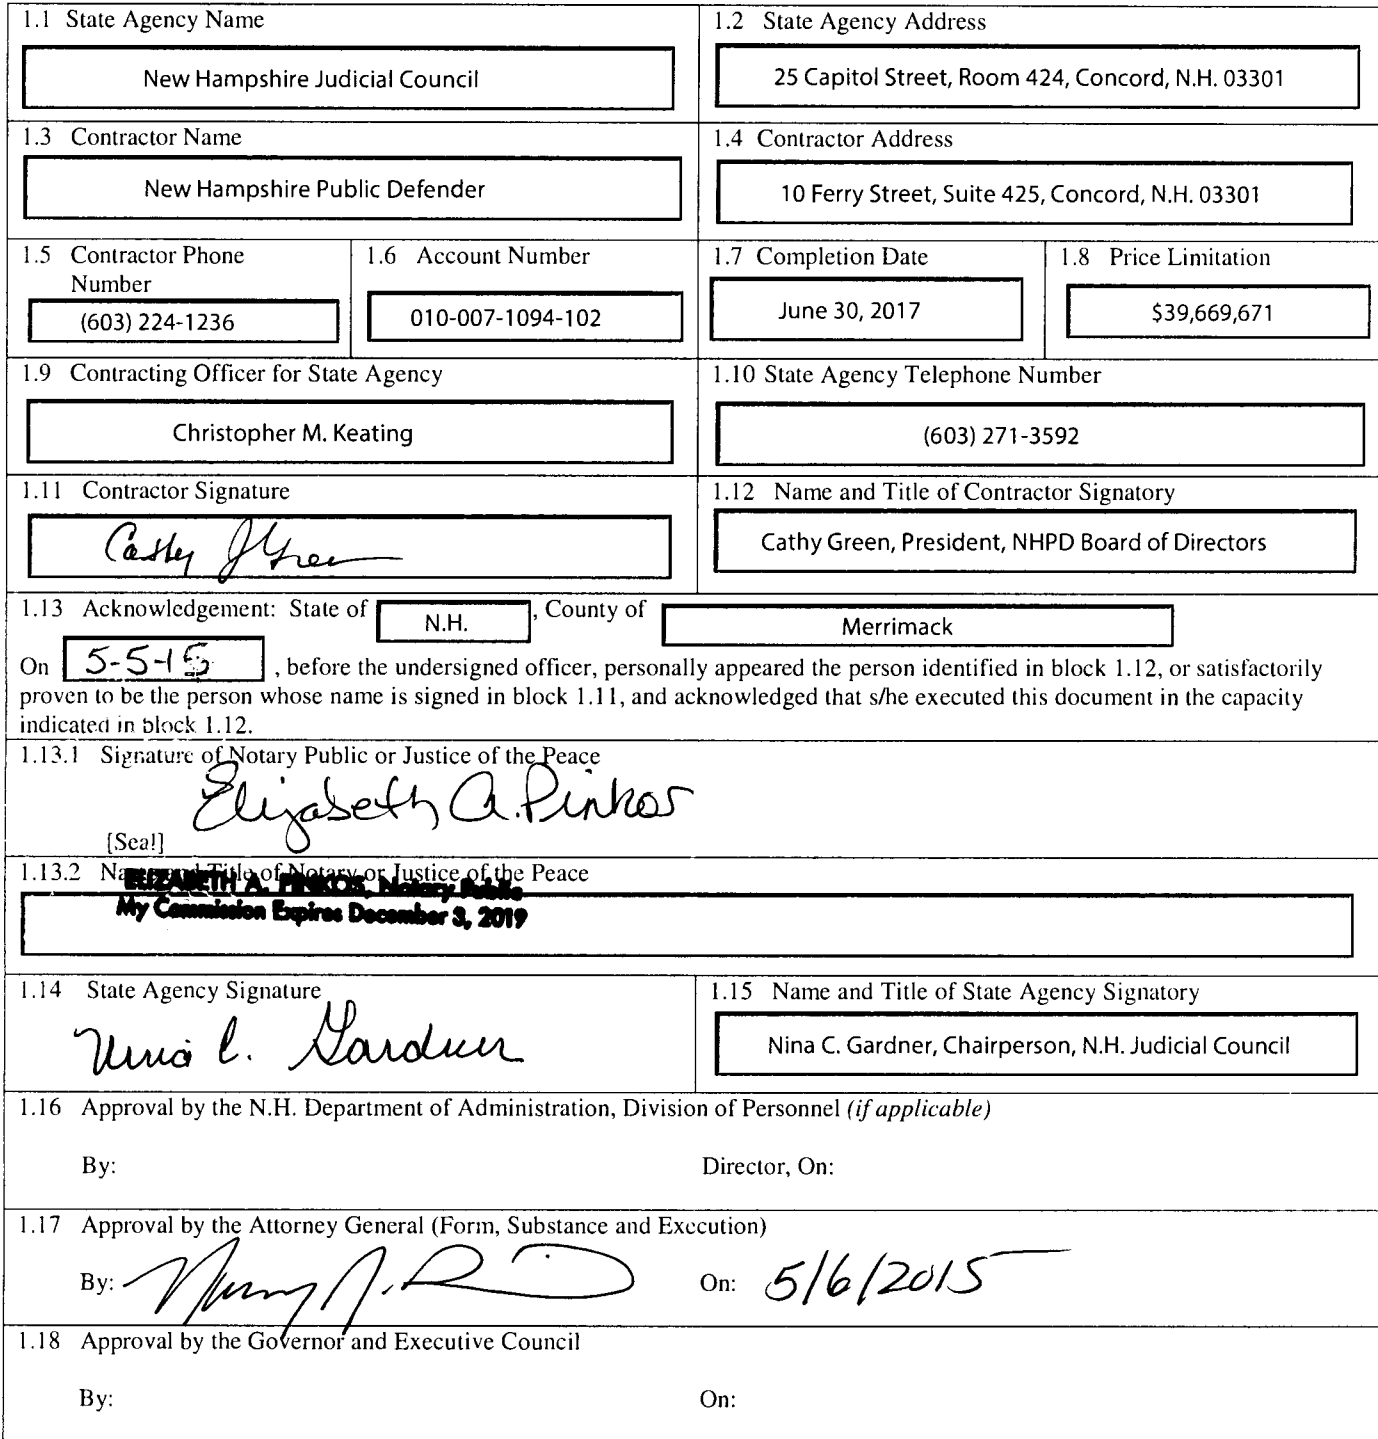 1.1 State Agency Name
New Hampshire Judicial Council
1.2 State Agency Address
25 Capitol Street, Room 424, Concord, N.H. 03301
1.3 Contractor Name
New Hampshire Public Defender
1.4 Contractor Address
10 Ferry Street, Suite 425, Concord, N.H. 03301
1.5 Contractor Phone
Number
(603) 224-1236
1.6 Account Number
010-007-1094-102
1.7 Completion Date
June 30, 2017
1.8 Price Limitation
$39,669,671
1.9 Contracting Officer for State Agency
Christopher M. Keating
1.10 State Agency Telephone Number
(603) 271-3592
1.11 Contractor Signature
Cathy J Green
1.12 Name and Title of Contractor Signatory
Cathy Green, President, NHPD Board of Directors
1.13 Acknowledgement: State of N.H., County of Merrimack
On 5-5-15, before the undersigned officer, personally appeared the person identified in block 1.12, or satisfactorily
proven to be the person whose name is signed in block 1.11, and acknowledged that s/he executed this document in the capacity
indicated in block 1.12.
1.13.1 Signature of Notary Public or Justice of the Peace
Elizabeth A. Pinkos
[Seal]
1.13.2 Name and Title of Notary or Justice of the Peace
ELIZABETH A. PINKOS, Notary Public
My Commission Expires December 3, 2019
1.14 State Agency Signature
Nina C. Gardner
1.15 Name and Title of State Agency Signatory
Nina C. Gardner, Chairperson, N.H. Judicial Council
1.16 Approval by the N.H. Department of Administration, Division of Personnel (if applicable)
By: Director, On:
1.17 Approval by the Attorney General (Form, Substance and Execution)
By: On: 5/6/2015
1.18 Approval by the Governor and Executive Council
By: On: